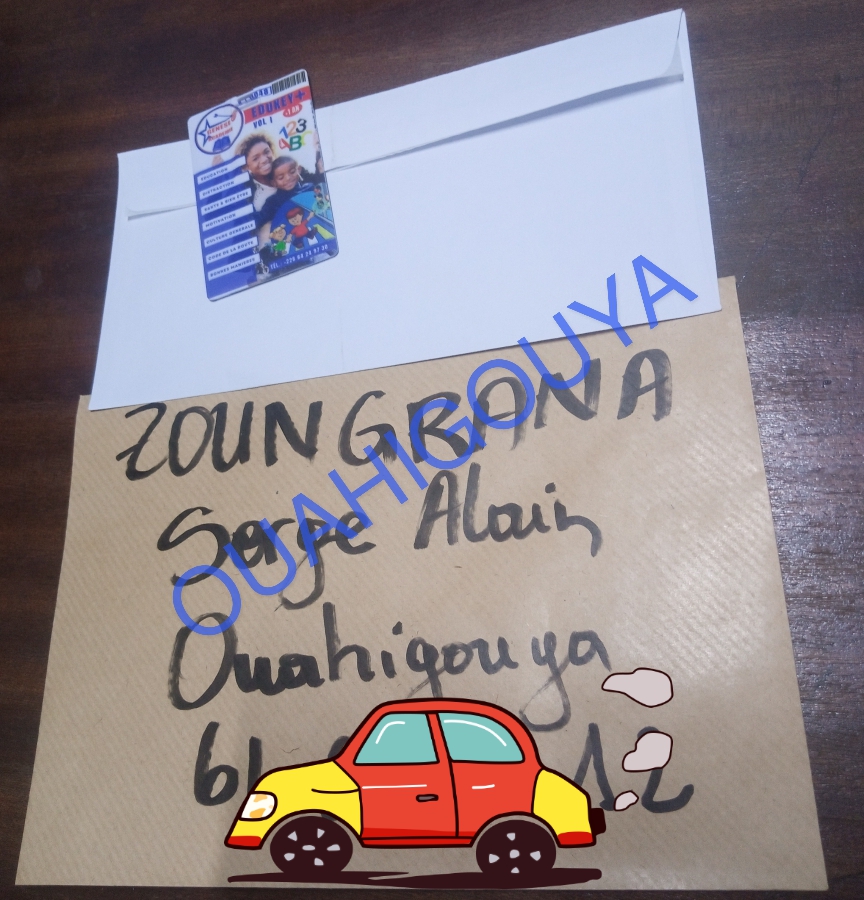 EDUKEY+
VOL 1
1 AN
123
ABC
EDUCATION
DISTRACTION
SANTE & BIEN ETRE
MOTIVATION
CULTURE GENERALE
CODE DE LA ROUTE
BONNES MANIERES
OUAHIGOUYA
ZOUNGRANA
Serge Alain
Ouahigouya
61
12